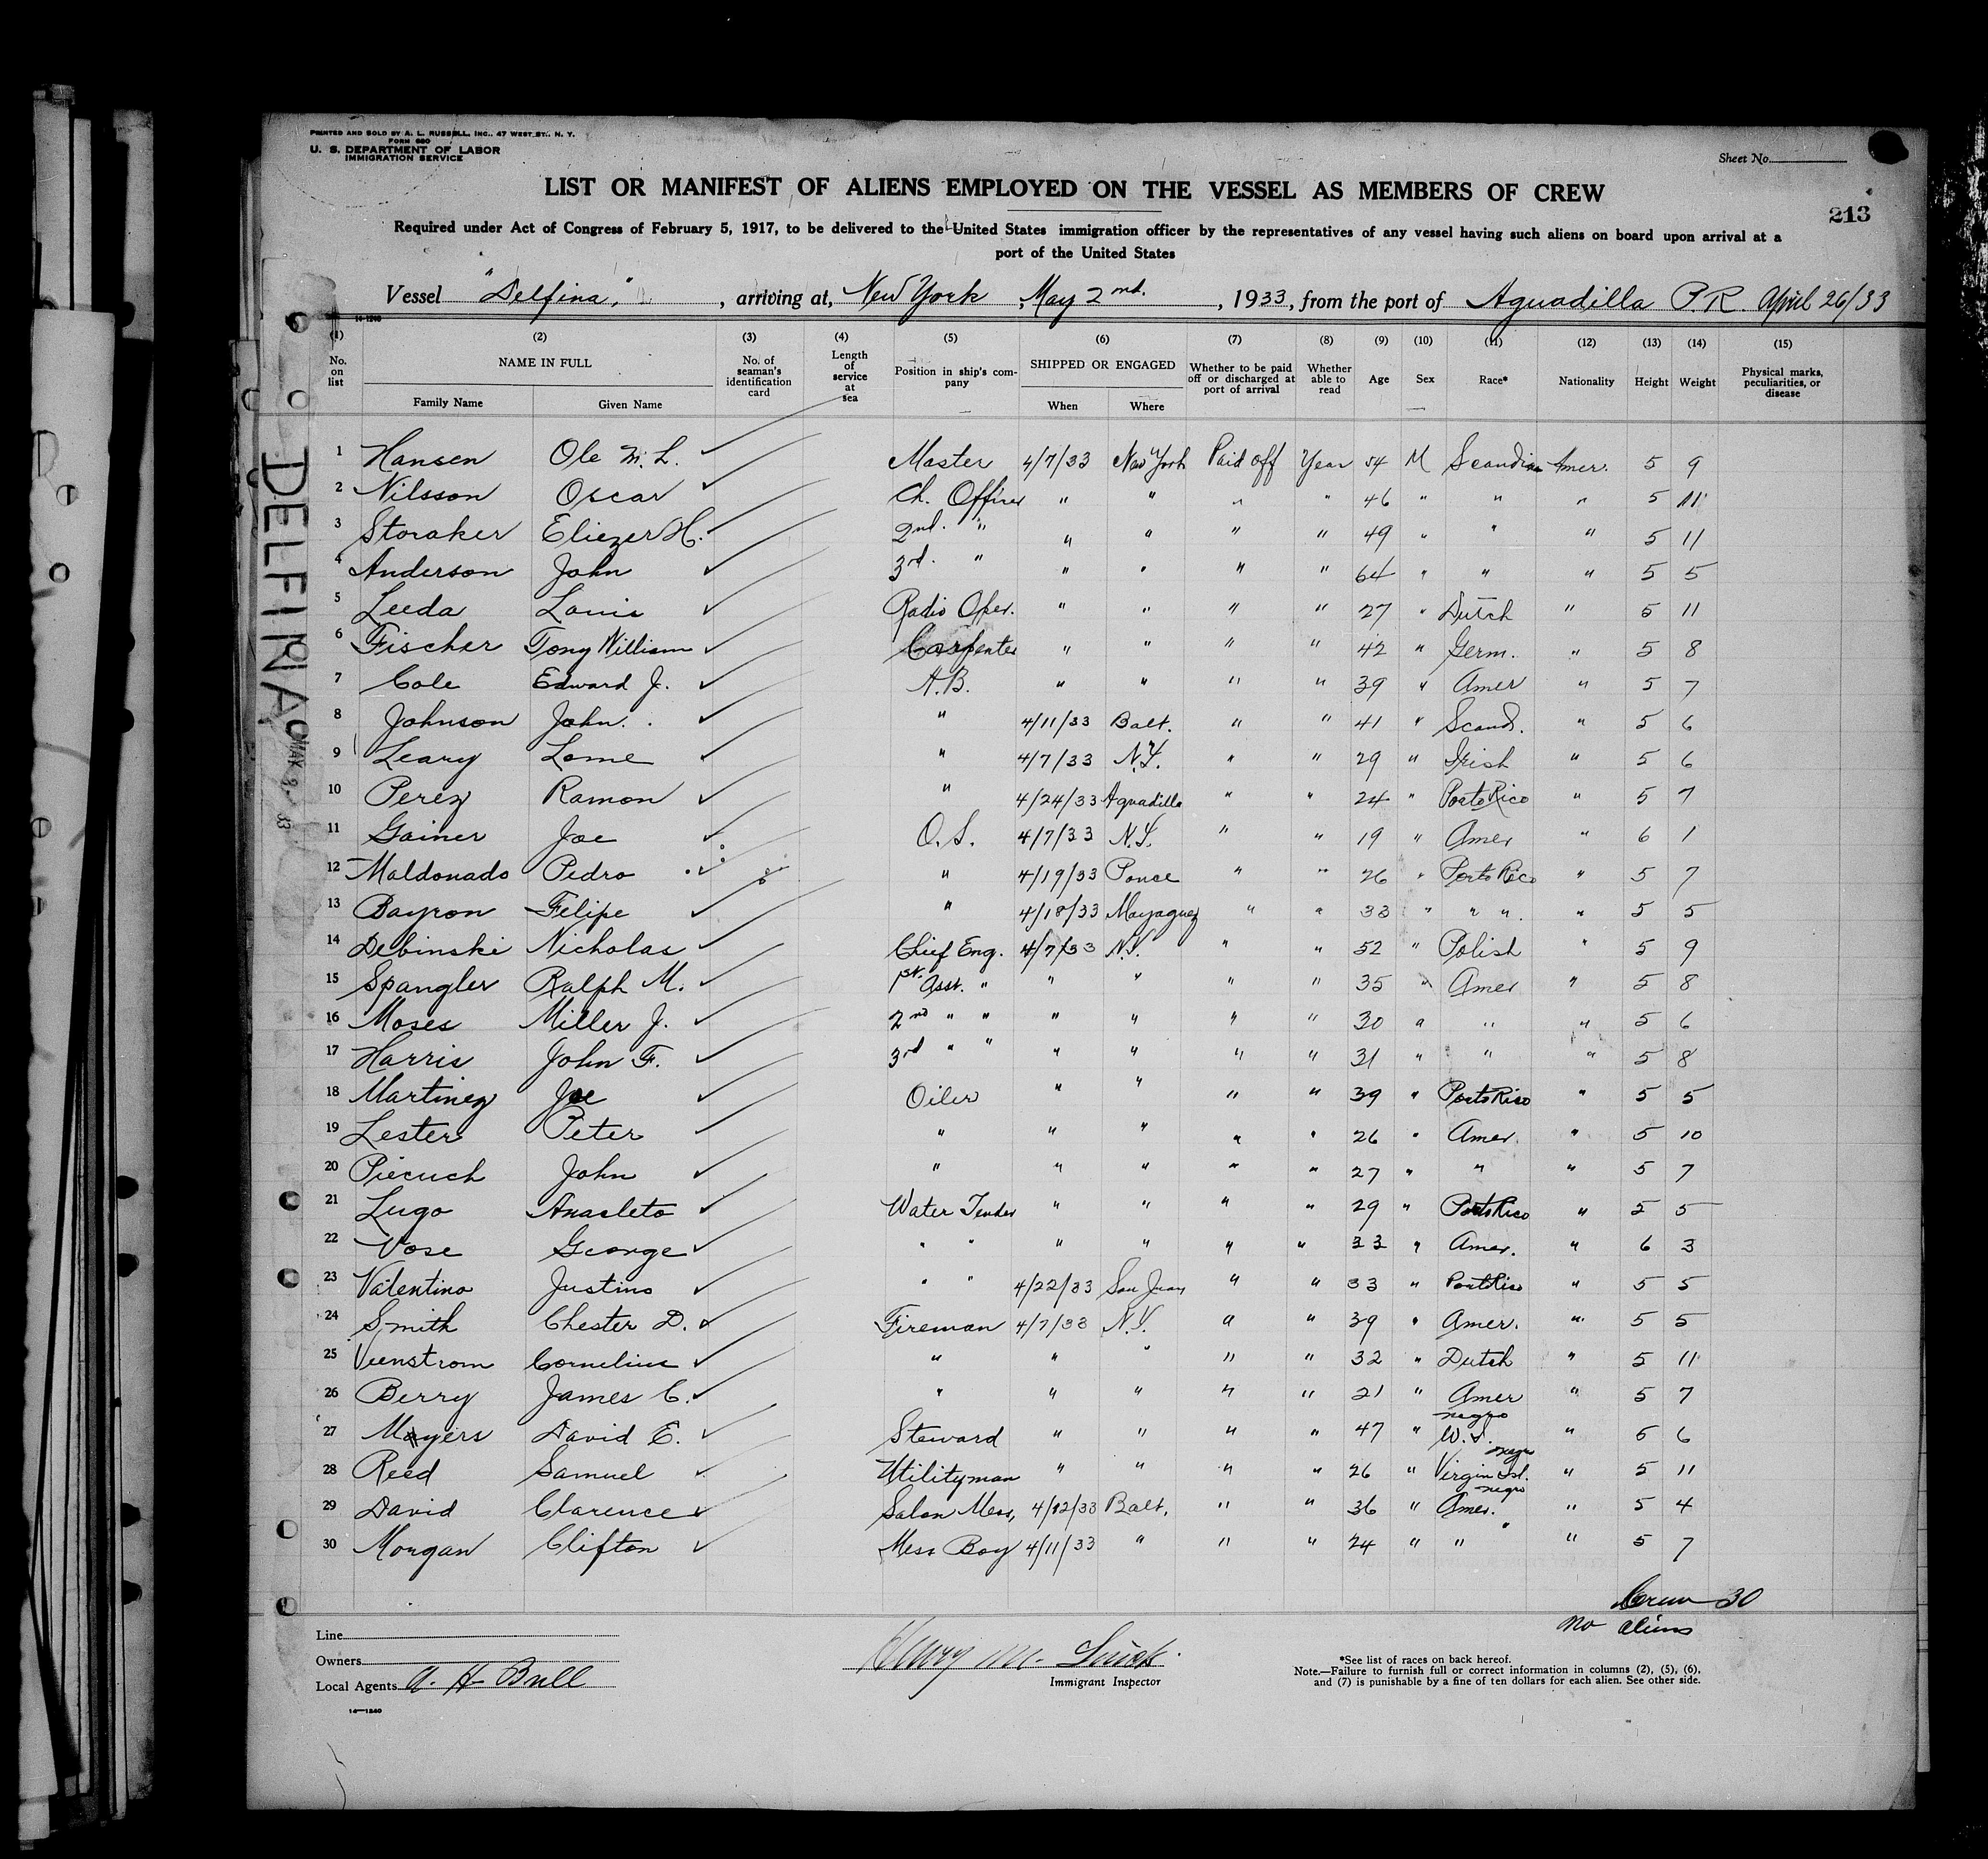 PRINTED AND SOLD BY A. L. RUSSELL, INC., 47 WEST ST., N. Y.
FORM 680
U. S. DEPARTMENT OF LABOR
IMMIGRATION SERVICE
Sheet No.
LIST OR MANIFEST OF ALIENS EMPLOYED ON THE VESSEL AS MEMBERS OF CREW
213
Required under Act of Congress of February 5, 1917, to be delivered to the United States immigration officer by the representatives of any vessel having such aliens on board upon arrival at a
port of the United States
Vessel "Delfina", arriving at, New York, May 2nd., 1933, from the port of Aguadilla P.R. April 26/33
14-1240
(1) (2) (3) (4) (5) (6) (7) (8) (9) (10) (11) (12) (13) (14) (15)
No. on list NAME IN FULL Family Name Given Name No. of seaman's identification card Length of service at sea Position in ship's company SHIPPED OR ENGAGED When Where Whether to be paid off or discharged at port of arrival Whether able to read Age Sex Race* Nationality Height Weight Physical marks, peculiarities, or disease
DELFINA
1 Hansen Ole M. L. Master 4/7/33 New York Paid off Year 54 M Scandian Amer. 5 9
2 Nilsson Oscar Ch. Officer " " " " 46 " " " 5 11
3 Storaker Eliezer H. 2nd. " " " " " 49 " " " 5 11
4 Anderson John 3rd. " " " " " 64 " " " 5 5
5 Leeda Louis Radio Oper. " " " " 27 " Dutch " 5 11
6 Fischer Tony William Carpenter " " " " 42 " Germ. " 5 8
7 Cole Edward J. A.B. " " " " 39 " Amer " 5 7
8 Johnson John " 4/11/33 Balt. " " 41 " Scand. " 5 6
9 Leary Lorne " 4/7/33 N.Y. " " 29 " Irish " 5 6
10 Perez Ramon " 4/24/33 Aguadilla " " 24 " Porto Rico " 5 7
11 Gainer Joe O.S. 4/7/33 N.Y. " " 19 " Amer " 6 1
12 Maldonado Pedro " 4/19/33 Ponce " " 26 " Porto Rico " 5 7
13 Bayron Felipe " 4/18/33 Mayaguez " " 33 " " " " 5 5
14 Debinski Nicholas Chief Eng. 4/7/33 N.Y. " " 52 " Polish " 5 9
15 Spangler Ralph M. 1st. Asst. " " " " " 35 " Amer " 5 8
16 Moses Miller J. 2nd " " " " " " 30 " " " 5 6
17 Harris John F. 3rd " " " " " " 31 " " " 5 8
18 Martinez Joe Oiler " " " " 39 " Porto Rico " 5 5
19 Lester Peter " " " " " 26 " Amer. " 5 10
20 Piecuch John " " " " " 27 " " " 5 7
21 Lugo Anacleto Water Tender " " " " 29 " Porto Rico " 5 5
22 Vose George " " " " " " 33 " Amer. " 6 3
23 Valentino Justino " " 4/22/33 San Juan " " 33 " Porto Rico " 5 5
24 Smith Chester D. Fireman 4/7/33 N.Y. " " 39 " Amer. " 5 5
25 Veenstrom Cornelius " " " " " 32 " Dutch " 5 11
26 Berry James C. " " " " " 21 " Amer " 5 7
27 Mayers David E. Steward " " " " 47 " negro W.I. " 5 6
28 Reed Samuel Utilityman " " " " 26 " Virgin Isl. negro " 5 11
29 David Clarence Salon Mess, 4/12/33 Balt. " " 36 " Amer. negro " 5 4
30 Morgan Clifton Mess Boy 4/11/33 " " " 24 " " " " 5 7
Crew 30
no aliens
Line
Owners
Local Agents A. H. Bull
Immigrant Inspector
*See list of races on back hereof.
Note.—Failure to furnish full or correct information in columns (2), (5), (6),
and (7) is punishable by a fine of ten dollars for each alien. See other side.
14—1240